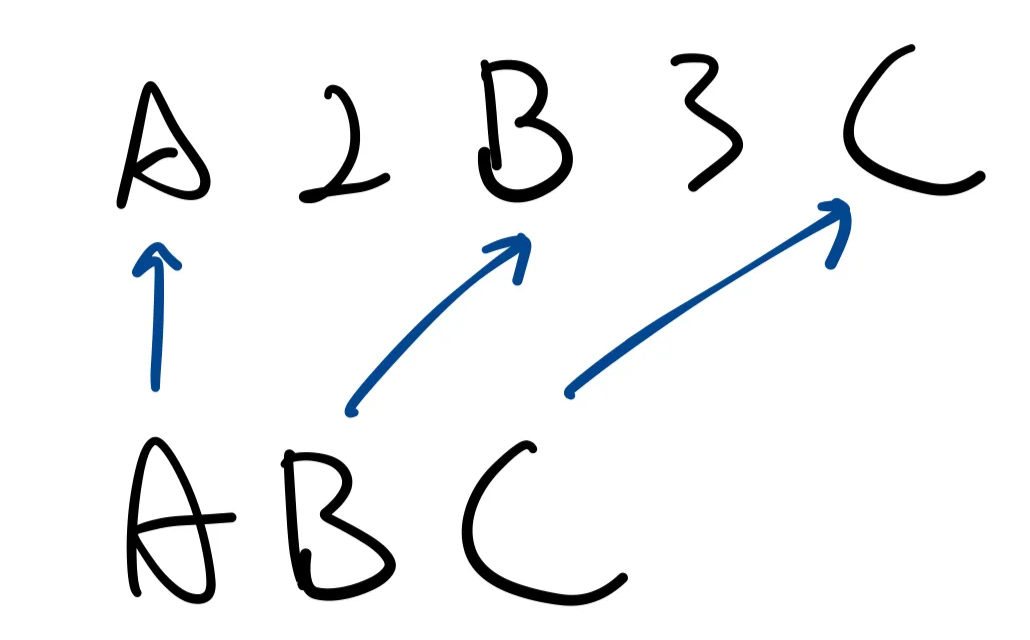 A 2 B 3 C
A B C